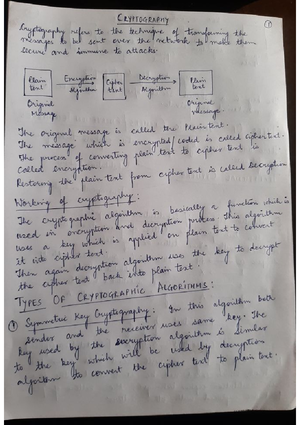 CRYPTOGRAPHY
1
Cryptography refers to the technique of transforming the
messages to be sent over the network to make them
secure and immune to attacks.
Plain text Encryption Algorithm Cipher text Decryption Algorithm Plain text
Original Original
message.
The original message is called the Plain text.
The message which is encrypted/coded is called cipher text.
The process of converting plain text to cipher text is
called encryption.
Restoring the plain text from cipher text is called Decryption
Working of cryptography:
The cryptographic algorithm is basically a function which is
used in encryption and decryption process this algorithm
uses a key which is applied on plain text to convert
it into cipher text.
Then again decryption algorithm use the key to decrypt
the cipher text back into plain text.
TYPES OF CRYPTOGRAPHIC ALGORITHMS:
1 Symmetric Key Cryptography: In this algorithm both
sender and the receiver uses same key. The
key used by the encryption algorithm is similar
to the key which will be used by decryption
algorithm to convert the cipher text to plain text.